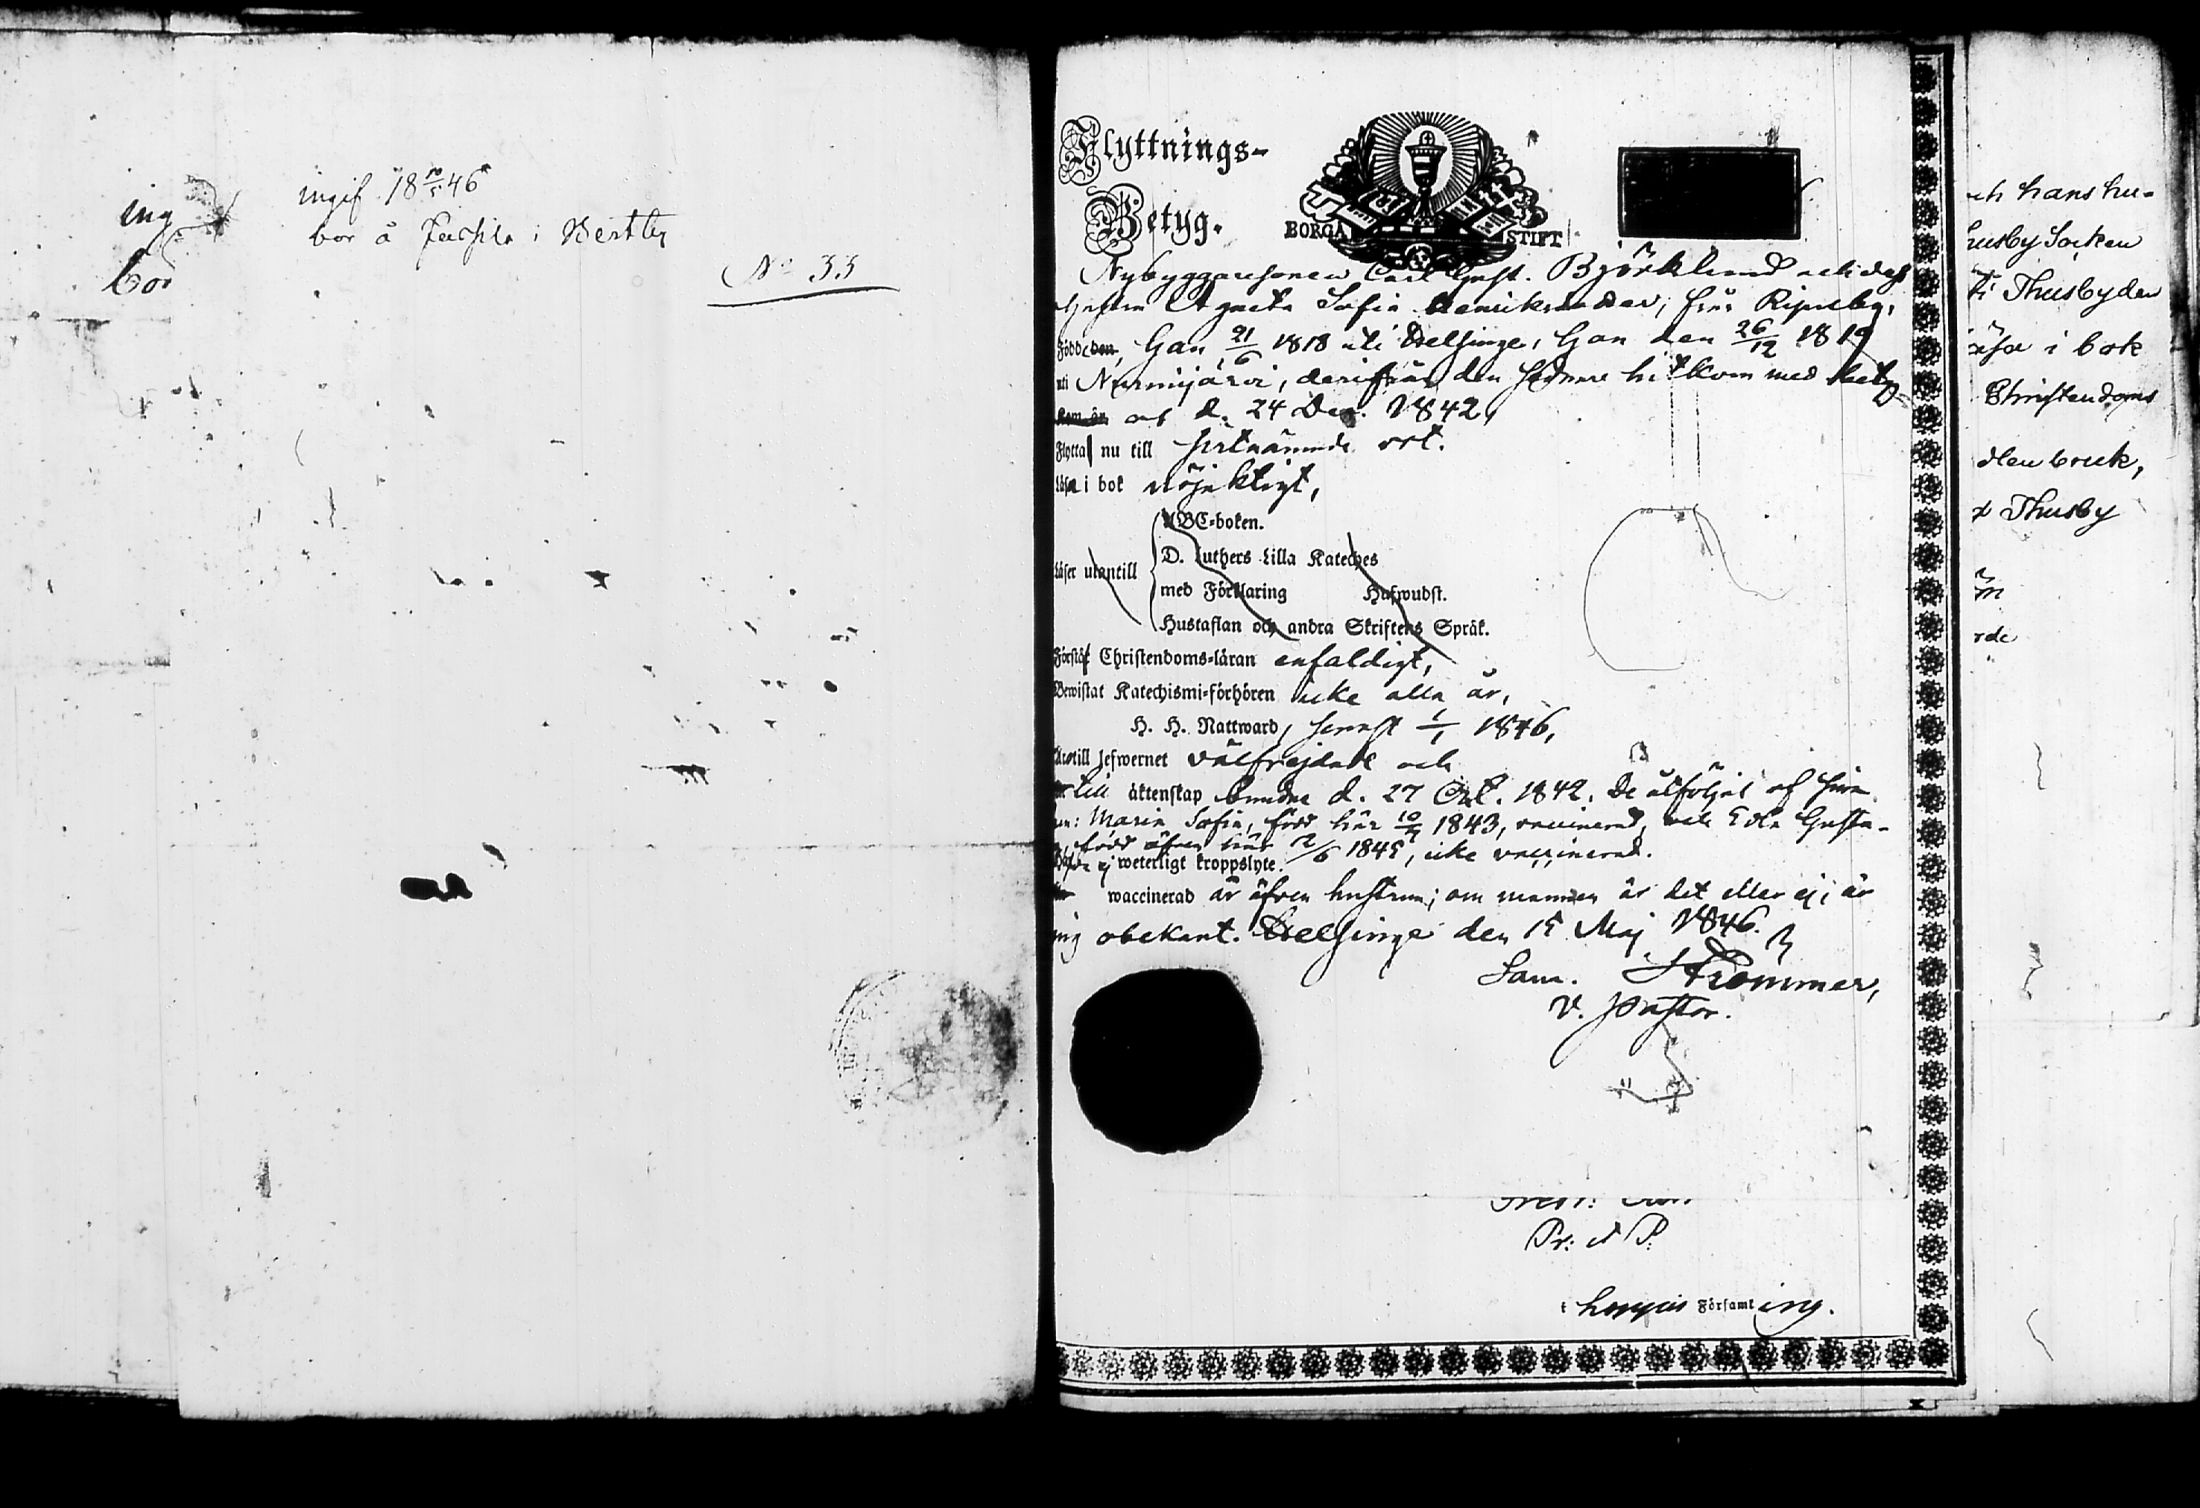 ingif 18 10/5 46
ing
bor å i
bor
No 33
Flyttnings-
Betyg.
BORGÅ STIFT
Nybyggaresonen Carl Gust. Björklund och dess
hustru Agneta Sofia Henriksdotter, från Ripuby,
Födde den, han 21/6 1818 uti Helsinge, hon den 26/12 1819
uti Nurmijärvi, derifrån den sednare hitkom med betyg
af d. 24 Dec. 1842,
Flytta nu till sistnämnde ort.
Läsa i bok nöjaktigt,
ABC-boken.
D. Luthers Lilla Kateches
Läser utantill
med Förklaring Hufwudst.
Hustaflan och andra Skriftens Språk.
Förstå Christendoms-läran enfaldigt,
Bewistat Katechismi-förhören icke alla år,
H. H. Nattward, senast 1/1 1846,
Äro till lefwernet välfrejdade och
till äktenskap bundne d. 27 Oct. 1842. De åtföljas af sina
Maria Sofia, född här 10/7 1843, vaccinerad, och Eda Gusta-
född äfven här 2/6 1845, icke vaccinerad.
ej weterligt kroppslyte.
waccinerad är äfven hustrun; om mannen är det eller ej, är
mig obekant. Helsinge den 15 Maj 1846.
Sam. Strömmer,
V. Pastor.
Pr: et P:
i Församling.
och hans hu-
Thusby Socken
Thusby den
läsa i bok
Christendoms
Thusby